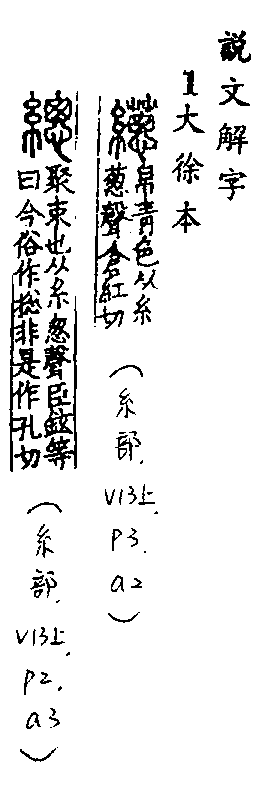 説文解字
1大徐本
繱帛青色从糸
蔥聲倉紅切
(糸部.V13上.P3.a2)
總聚束也从糸悤聲臣鉉等
曰今俗作捴非是作孔切
(糸部.V13上.P2.a3)